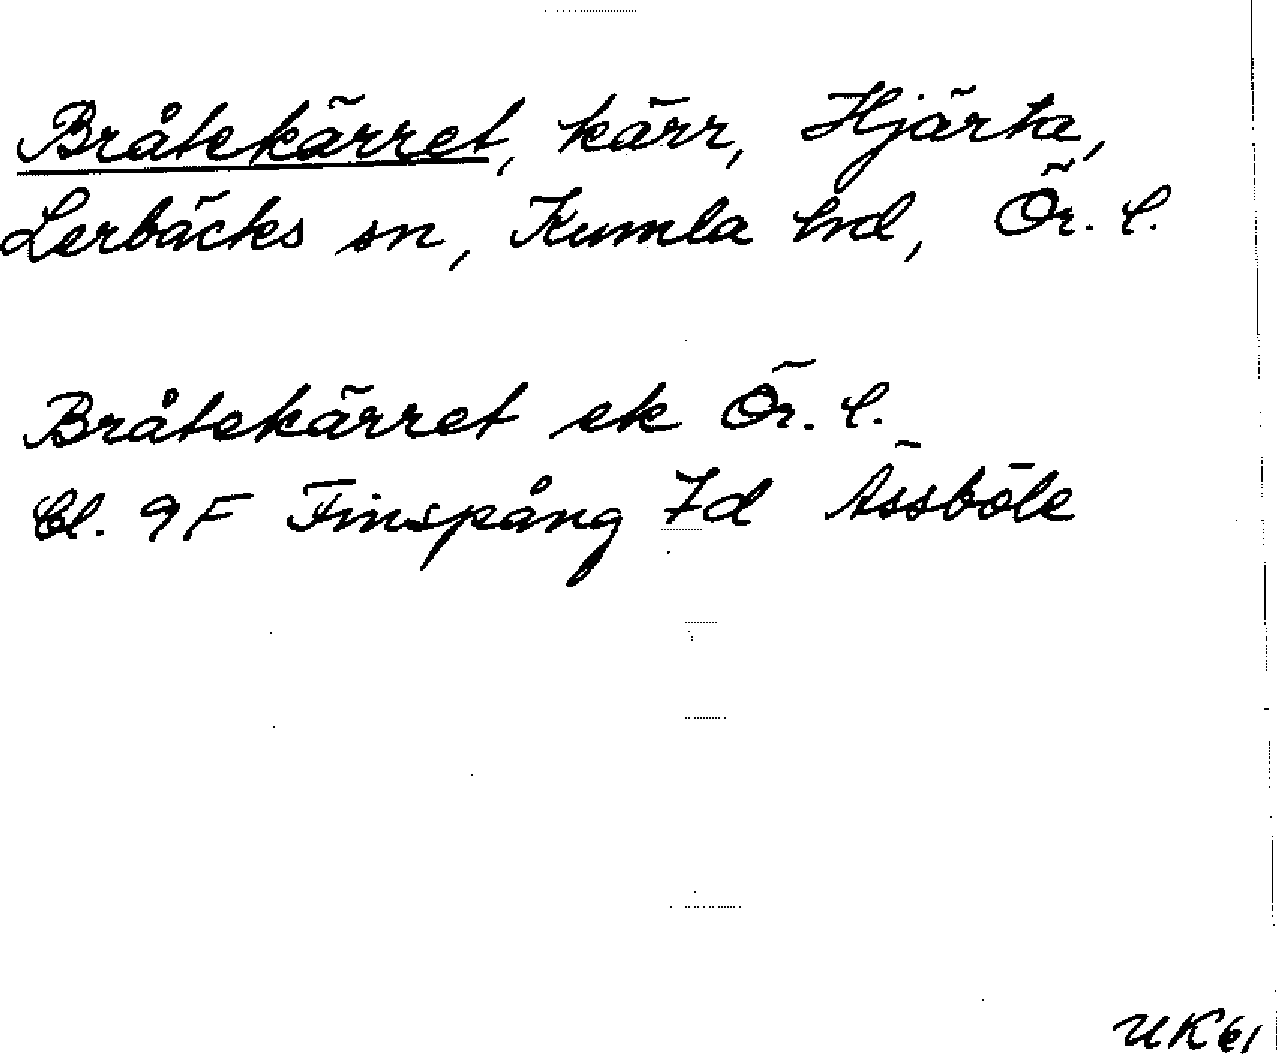 Bråtekärret, kärr, Hjärta,
Lerbäcks sn, Kumla hd, Ör. l.
Bråtekärret ek Ör. l.
Bl. 9F Finspång 7d Ässböle
UK61